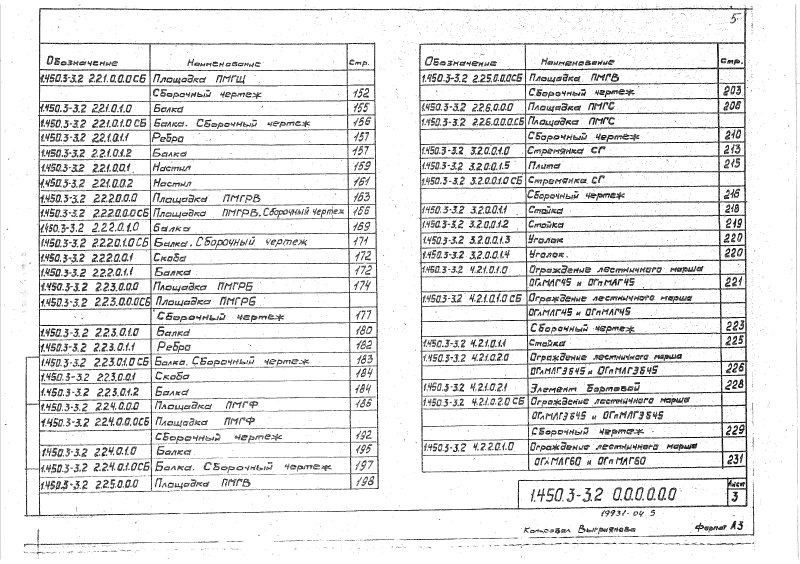 5
Обозначение Наименование Стр.
1.450.3-3.2 2.2.1.0.0.0 СБ Площадка ПМГЩ
Сборочный чертеж 152
1.450.3-3.2 2.2.1.0.1.0 Балка 155
1.450.3-3.2 2.2.1.0.1.0 СБ Балка. Сборочный чертеж 156
1.450.3-3.2 2.2.1.0.1.1 Ребро 157
1.450.3-3.2 2.2.1.0.1.2 Балка 157
1.450.3-3.2 2.2.1.0.0.1 Настил 159
1.450.3-3.2 2.2.1.0.0.2 Настил 161
1.450.3-3.2 2.2.2.0.0.0 Площадка ПМГРВ 163
1.450.3-3.2 2.2.2.0.0.0СБ Площадка ПМГРВ. Сборочный чертеж 166
1.450.3-3.2 2.2.2.0.1.0 Балка 169
1.450.3-3.2 2.2.2.0.1.0 СБ Балка. Сборочный чертеж 171
1.450.3-3.2 2.2.2.0.0.1 Скоба 172
1.450.3-3.2 2.2.2.0.1.1 Балка 172
1.450.3-3.2 2.2.3.0.0.0 Площадка ПМГРБ 174
1.450.3-3.2 2.2.3.0.0.0СБ Площадка ПМГРБ
Сборочный чертеж 177
1.450.3-3.2 2.2.3.0.1.0 Балка 180
1.450.3-3.2 2.2.3.0.1.1 Ребро 182
1.450.3-3.2 2.2.3.0.1.0 СБ Балка. Сборочный чертеж 183
1.450.3-3.2 2.2.3.0.0.1 Скоба 184
1.450.3-3.2 2.2.3.0.1.2 Балка 184
1.450.3-3.2 2.2.4.0.0.0 Площадка ПМГФ 186
1.450.3-3.2 2.2.4.0.0.0СБ Площадка ПМГФ
Сборочный чертеж 192
1.450.3-3.2 2.2.4.0.1.0 Балка 195
1.450.3-3.2 2.2.4.0.1.0СБ Балка. Сборочный чертеж 197
1.450.3-3.2 2.2.5.0.0.0 Площадка ПМГВ 198
Обозначение Наименование Стр.
1.450.3-3.2 2.2.5.0.0.0СБ Площадка ПМГВ
Сборочный чертеж 203
1.450.3-3.2 2.2.6.0.0.0 Площадка ПМГС 206
1.450.3-3.2 2.2.6.0.0.0СБ Площадка ПМГС
Сборочный чертеж 210
1.450.3-3.2 3.2.0.0.1.0 Стремянка СГ 213
1.450.3-3.2 3.2.0.0.1.5 Плита 215
1.450.3-3.2 3.2.0.0.1.0 СБ Стремянка СГ
Сборочный чертеж 216
1.450.3-3.2 3.2.0.0.1.1 Стойка 218
1.450.3-3.2 3.2.0.0.1.2 Стойка 219
1.450.3-3.2 3.2.0.0.1.3 Уголок 220
1.450.3-3.2 3.2.0.0.1.4 Уголок 220
1.450.3-3.2 4.2.1.0.1.0 Ограждение лестничного марша
ОГлМЛГ45 и ОГпМЛГ45 221
1.450.3-3.2 4.2.1.0.1.0 СБ Ограждение лестничного марша
ОГлМЛГ45 и ОГпМЛГ45
Сборочный чертеж 223
1.450.3-3.2 4.2.1.0.1.1 Стойка 225
1.450.3-3.2 4.2.1.0.2.0 Ограждение лестничного марша
ОГлМЛГЭБ45 и ОГпМЛГЭБ45 226
1.450.3-3.2 4.2.1.0.2.1 Элемент бортовой 228
1.450.3-3.2 4.2.1.0.2.0 СБ Ограждение лестничного марша
ОГлМЛГЭБ45 и ОГпМЛГЭБ45
Сборочный чертеж 229
1.450.3-3.2 4.2.2.0.1.0 Ограждение лестничного марша
ОГлМЛГ60 и ОГпМЛГ60 231
1.450.3-3.2 0.0.0.0.0.0 Лист 3
19931-04 5
Копировал Выгрианова Формат А3